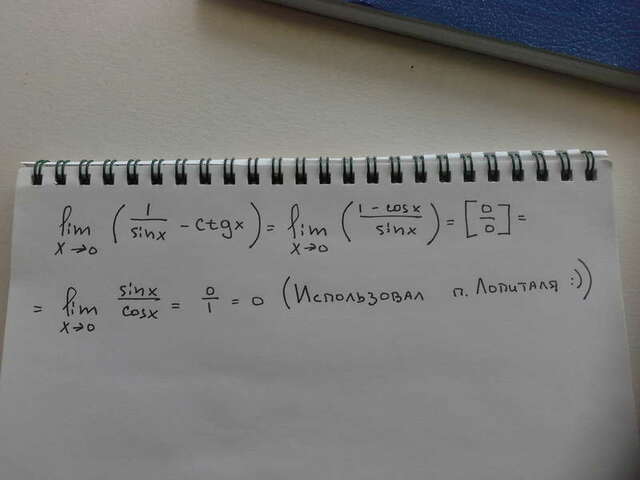 lim x→0 (1/sinx - ctgx) = lim x→0 (1-cosx/sinx) = [0/0] =
= lim x→0 sinx/cosx = 0/1 = 0 (Использовал п. Лопиталя :))